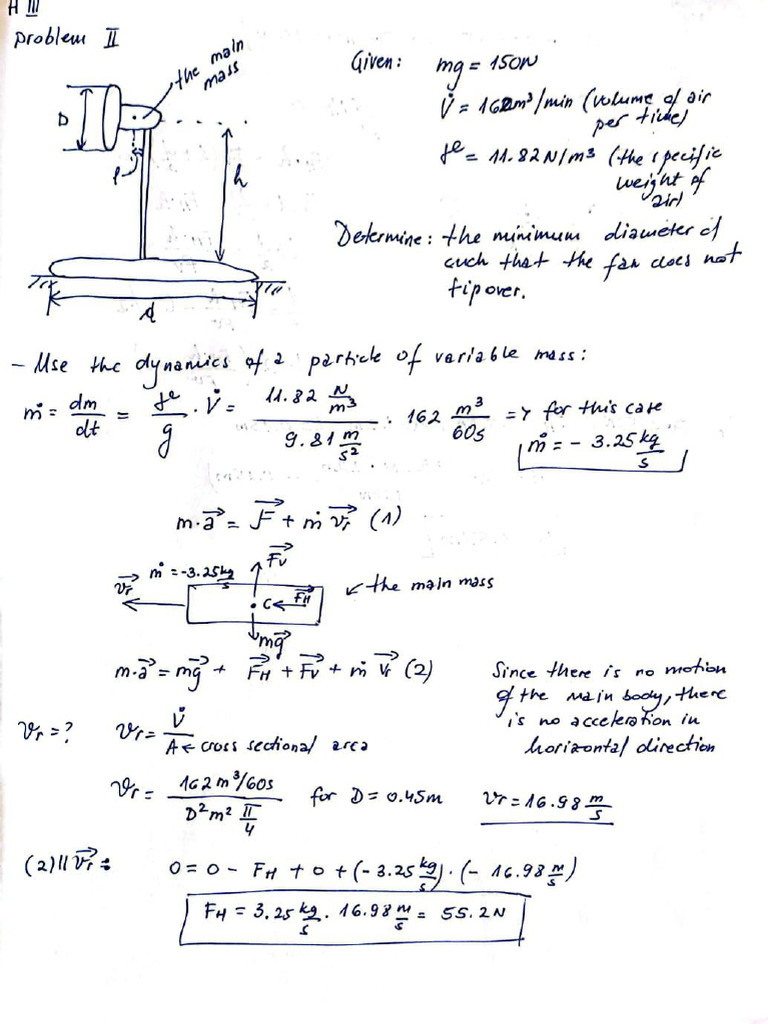 H III
Problem II
the main
mass
D
l
h
d
Given: mg = 150N
V̇ = 162m³/min (volume of air
per time)
γᵉ = 11.82 N/m³ (the specific
weight of
air)
Determine: the minimum diameter d
such that the fan does not
tip over.
- Use the dynamics of a particle of variable mass:
ṁ = dm/dt = γᵉ/g · V̇ = (11.82 N/m³)/(9.81 m/s²) · 162 m³/60s => for this case
ṁ = - 3.25 kg/s
m·a⃗ = F⃗ + ṁ v⃗r (1)
v⃗r ṁ = -3.25 kg/s F⃗v
C F⃗H ← the main mass
mg⃗
m·a⃗ = mg⃗ + F⃗H + F⃗v + ṁ v⃗r (2)
Since there is no motion
of the main body, there
is no acceleration in
horizontal direction
vr = ? vr = V̇/A ← cross sectional area
vr = (162 m³/60s)/(D² m² π/4) for D = 0.45m vr = 16.98 m/s
(2) || v⃗r : 0 = 0 - FH + 0 + (-3.25 kg/s) · (- 16.98 m/s)
FH = 3.25 kg/s · 16.98 m/s = 55.2 N